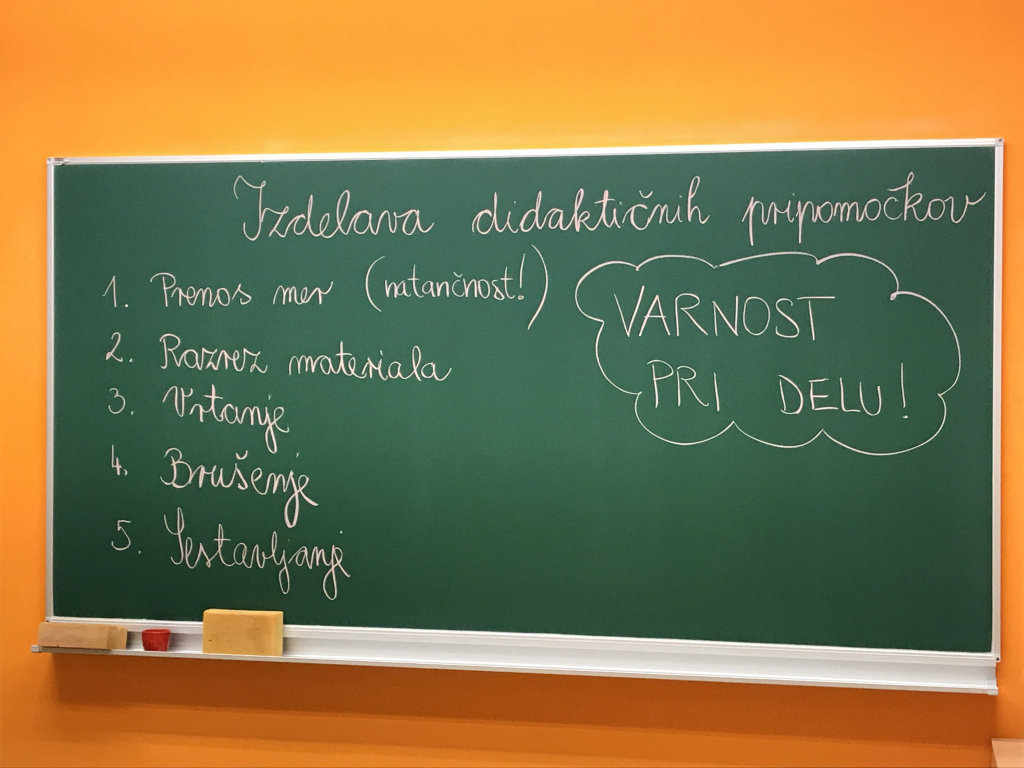 Izdelava didaktičnih pripomočkov
1. Prenos mer (natančnost!)
2. Razrez materiala
3. Vrtanje
4. Brušenje
5. Sestavljanje
VARNOST
PRI DELU!